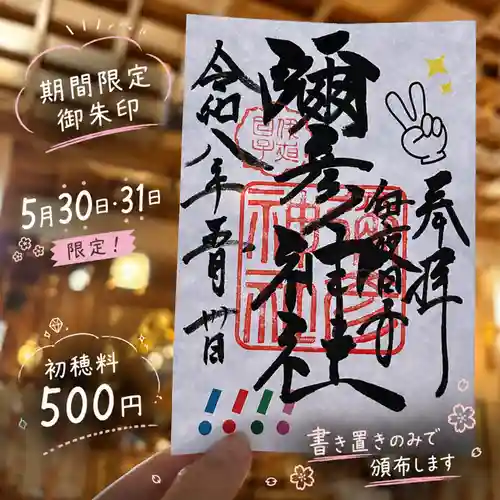 期間限定
御朱印
5月30日・31日
限定！
初穂料
500円
奉拝
彌彦神社
令和八年五月卅日
書き置きのみで
頒布します